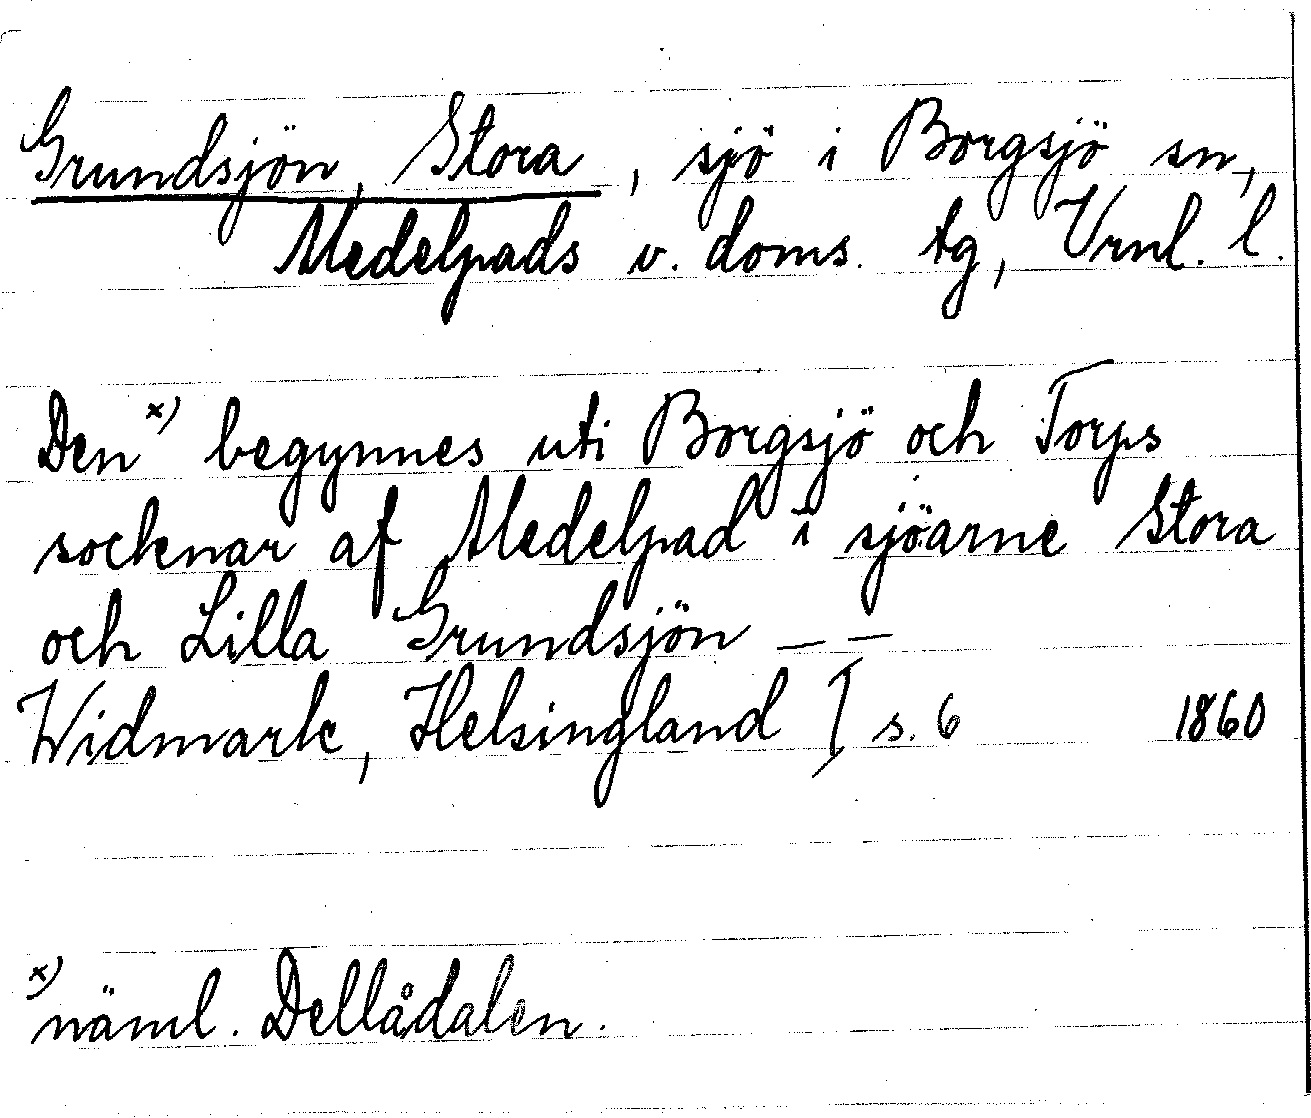 Grundsjön, Stora, sjö i Borgsjö sn,
Medelpads v. doms. tg, Vrnl. l.
Den x) begynnes uti Borgsjö och Torps
socknar af Medelpad i sjöarne Stora
och Lilla Grundsjön — —
Widmark, Helsingland I s. 6 1860
x) näml. Dellådalen.